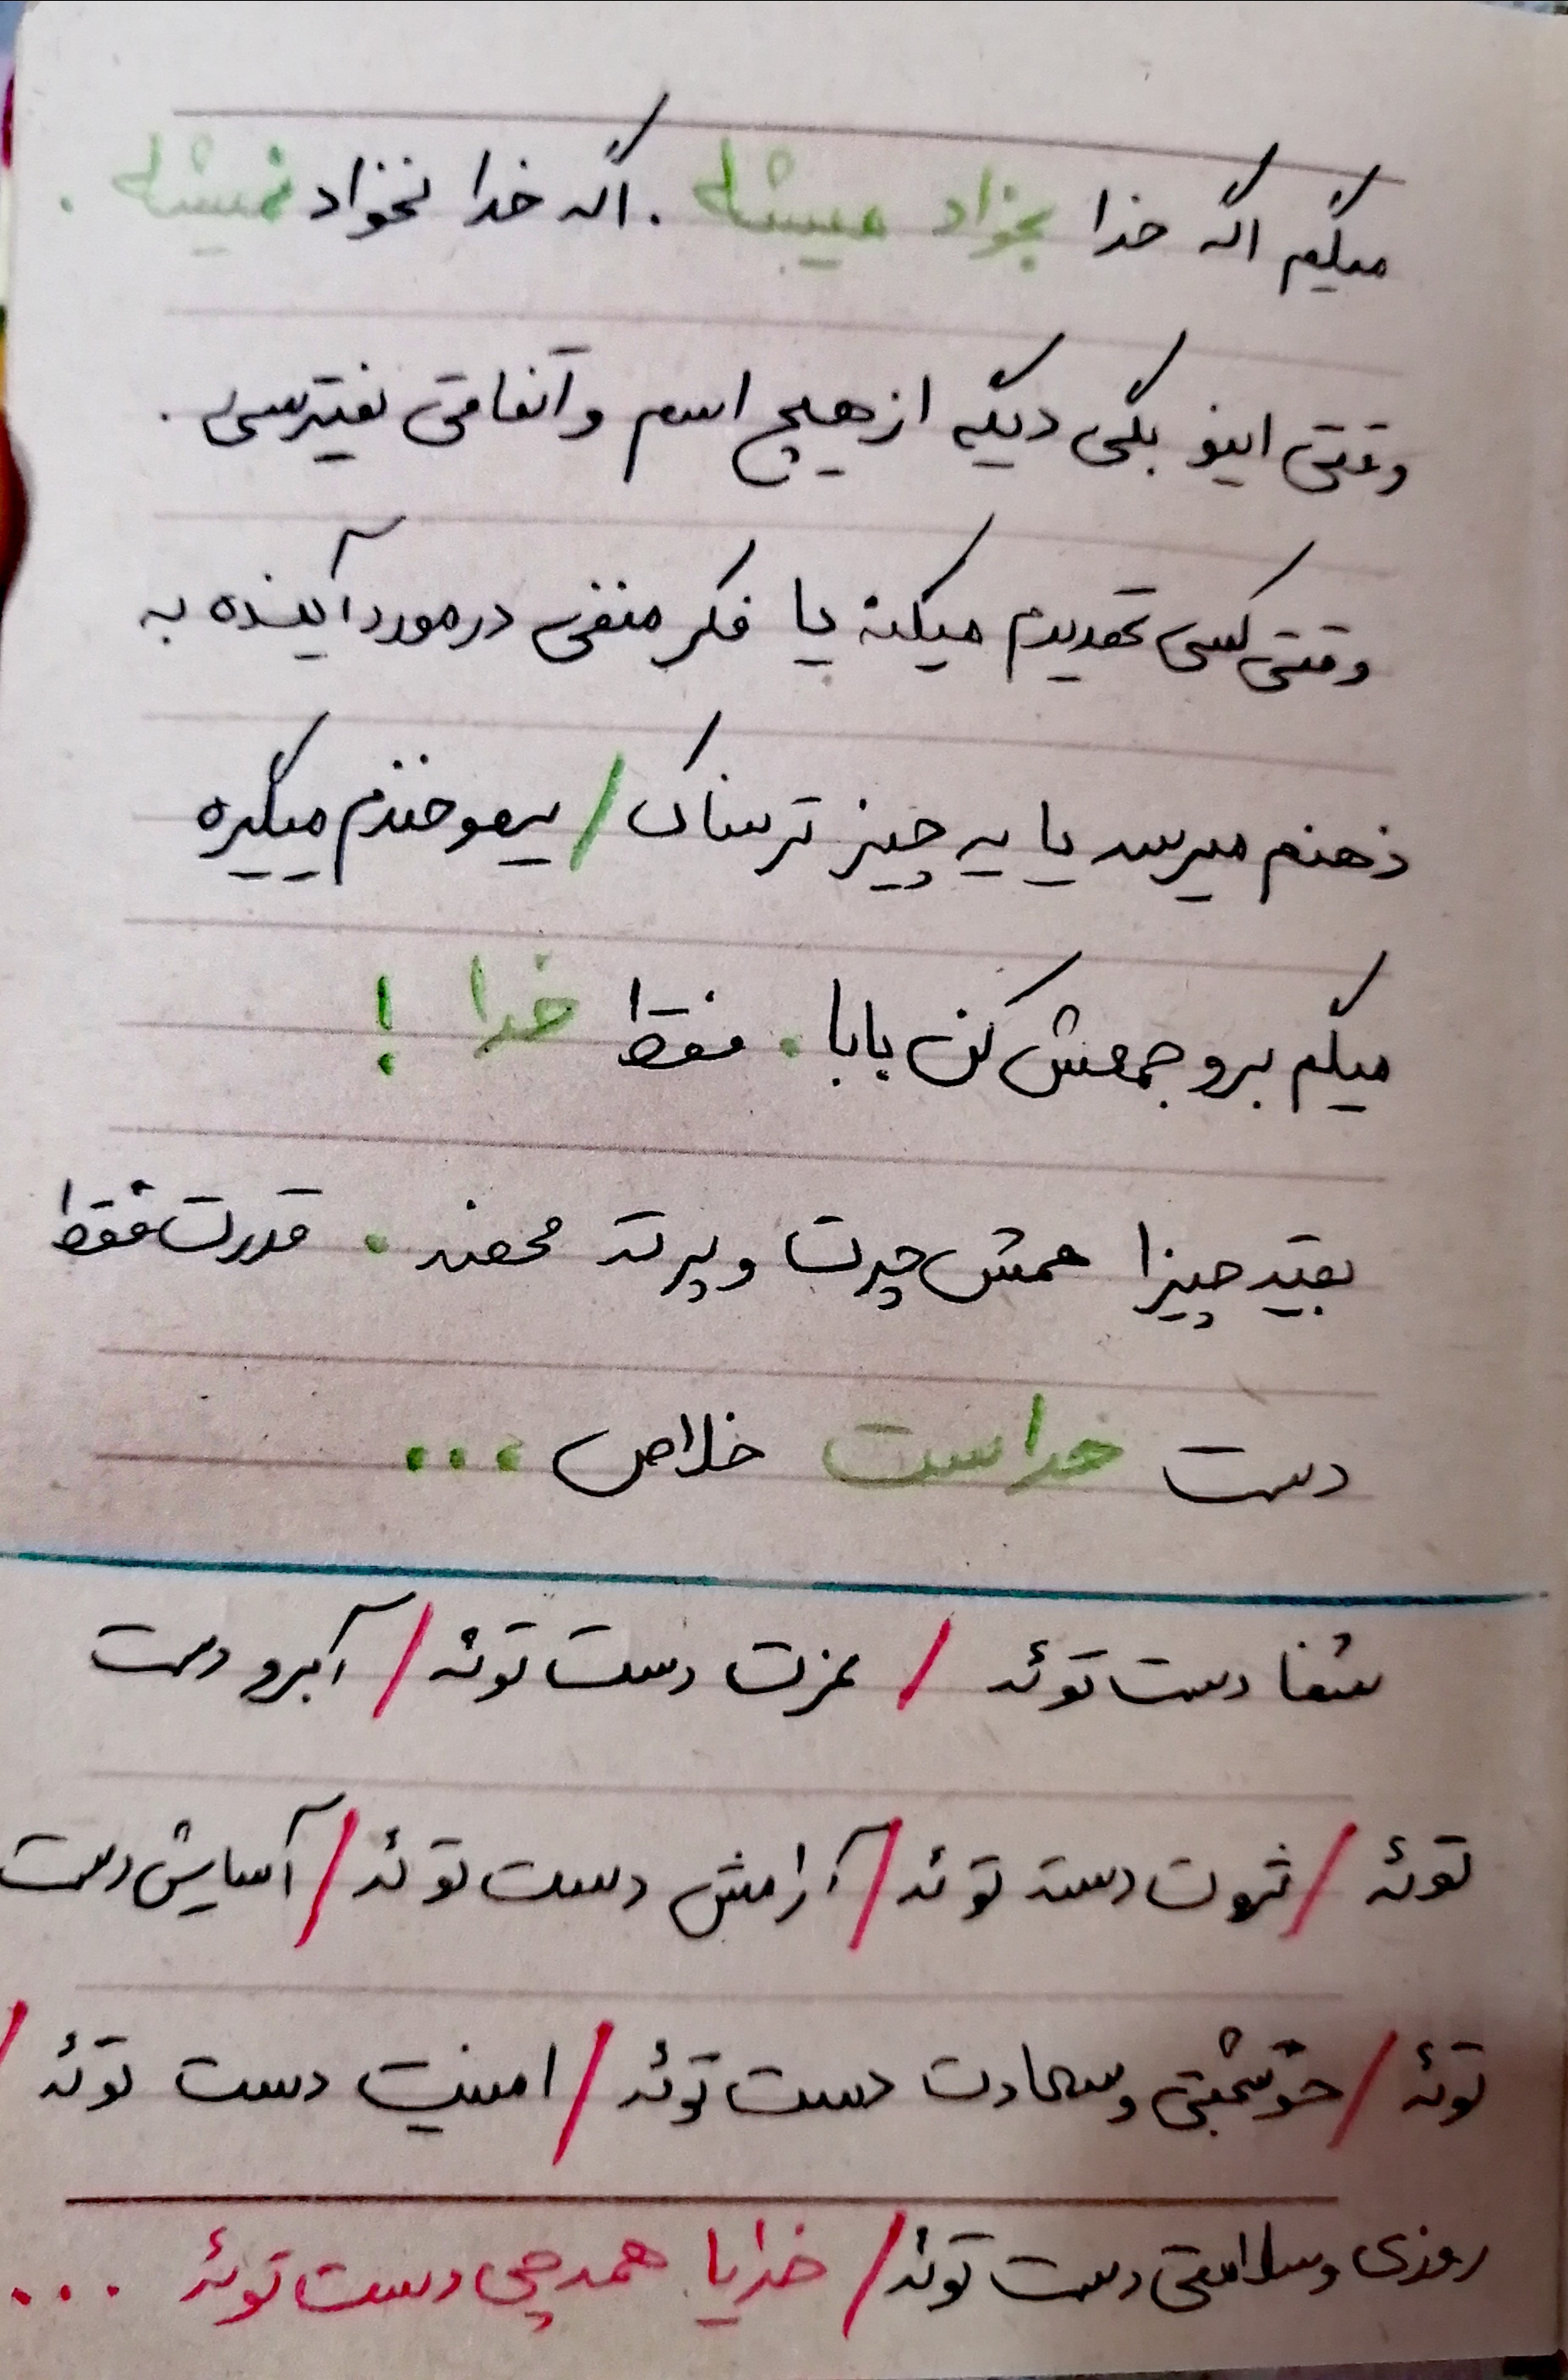 میگم اگه خدا بخواد میشه . اگه خدا نخواد نمیشه .
وقتی اینو بگی دیگه از هیچ اسم و اتفاقی نمیترسی .
وقتی کسی تهدیدم میکنه یا فکر منفی در مورد آینده به
ذهنم میرسه یا یه چیز ترسناک / یهو خندم میگیره
میگم برو جمعش کن بابا . فقط خدا !
بقیه چیزا همش چرت و پرته محضند . قدرت فقط
دست خداست خلاص ...
شفا دست توئه / عزت دست توئه / آبرو دست
توئه / ثروت دسته توئه / آرامش دست توئه / آسایش دست
توئه / خوشبختی و سعادت دست توئه / امنیت دست توئه /
روزی و سلامتی دست توئه / خدایا همه چی دست توئه ...